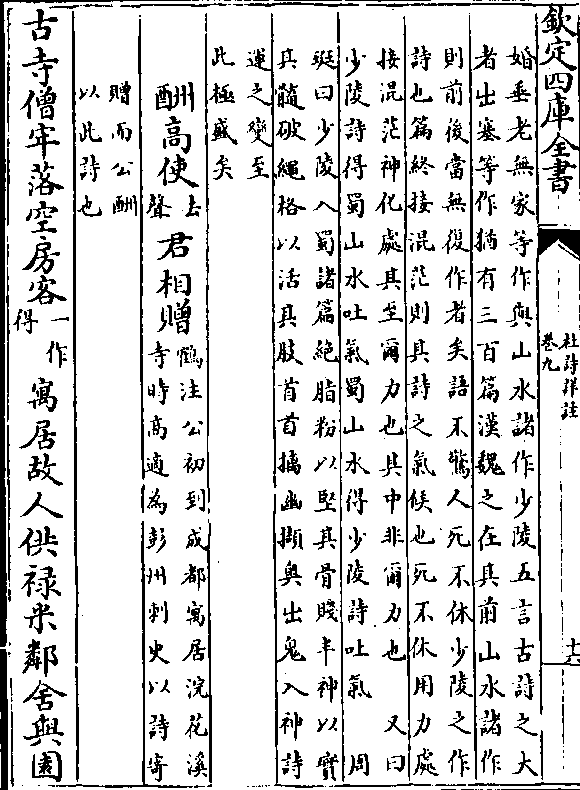 欽定四庫全書
杜詩詳註
卷九
十六
婚垂老無家等作與山水諸作少陵五言古詩之大
者出塞等作猶有三百篇漢魏之在其前山水諸作
則前後當無復作者矣語不驚人死不休少陵之作
詩也篇終接混茫則其詩之氣候也死不休用力處
接混茫神化處其至爾力也其中非爾力也 又曰
少陵詩得蜀山水吐氣蜀山水得少陵詩吐氣 周
珽曰少陵入蜀諸篇絶脂粉以堅其骨賤丰神以實
其髓破繩格以活其肢首首摛幽擷奥出鬼入神詩
運之變至
此極盛矣
酬高使去聲君相贈鶴注公初到成都寓居浣花溪
寺時高適為彭州刺史以詩寄
贈而公酬
以此詩也
古寺僧牢落空房客一作得寓居故人供禄米鄰舍與園